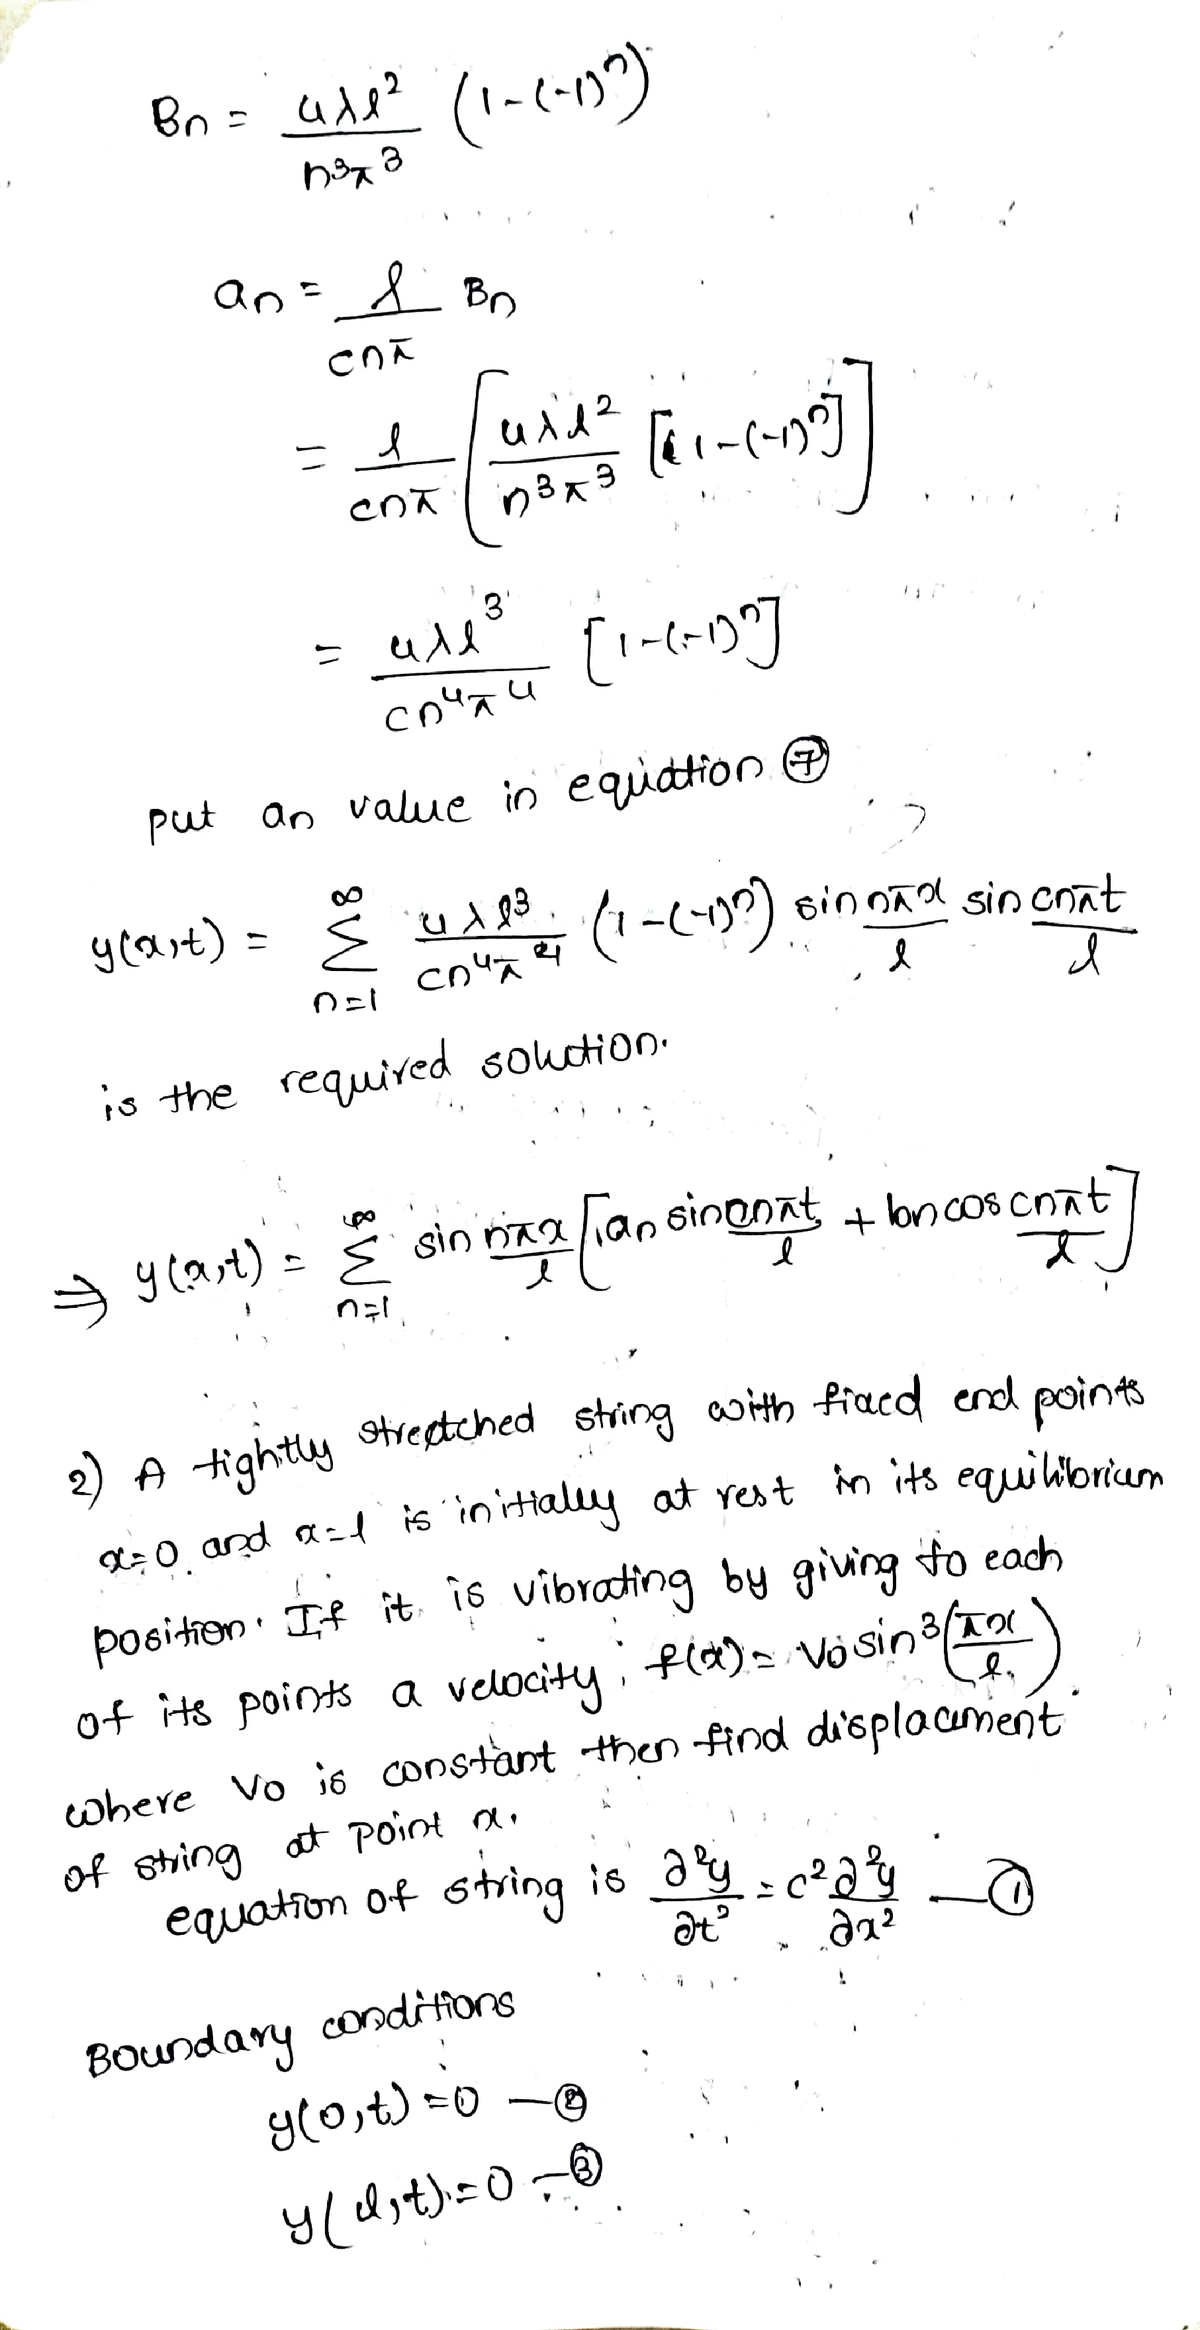 Bn = 4λl²/n³π³ (1-(-1)ⁿ)
an = l/cnπ Bn
= l/cnπ [4λl²/n³π³ [1-(-1)ⁿ]]
= 4λl³/cn⁴π⁴ [1-(-1)ⁿ]
put an value in equation ⑦
y(x,t) = ∞Σn=1 4λl³/cn⁴π⁴ (1-(-1)ⁿ) sin nπx/l sin cnπt/l
is the required solution.
⇒ y(x,t) = ∞Σn=1 sin nπx/l [an sin cnπt/l + bn cos cnπt/l]
2) A tightly stretched string with fixed end points
x=0 and x=l is initially at rest in its equilibrium
position. If it is vibrating by giving to each
of its points a velocity, f(x) = Vo sin³(πx/l)
where Vo is constant then find displacement
of string at point x.
equation of string is ∂²y/∂t² = c² ∂²y/∂x² —①
Boundary conditions
y(0,t) = 0 —②
y(l,t) = 0 —③